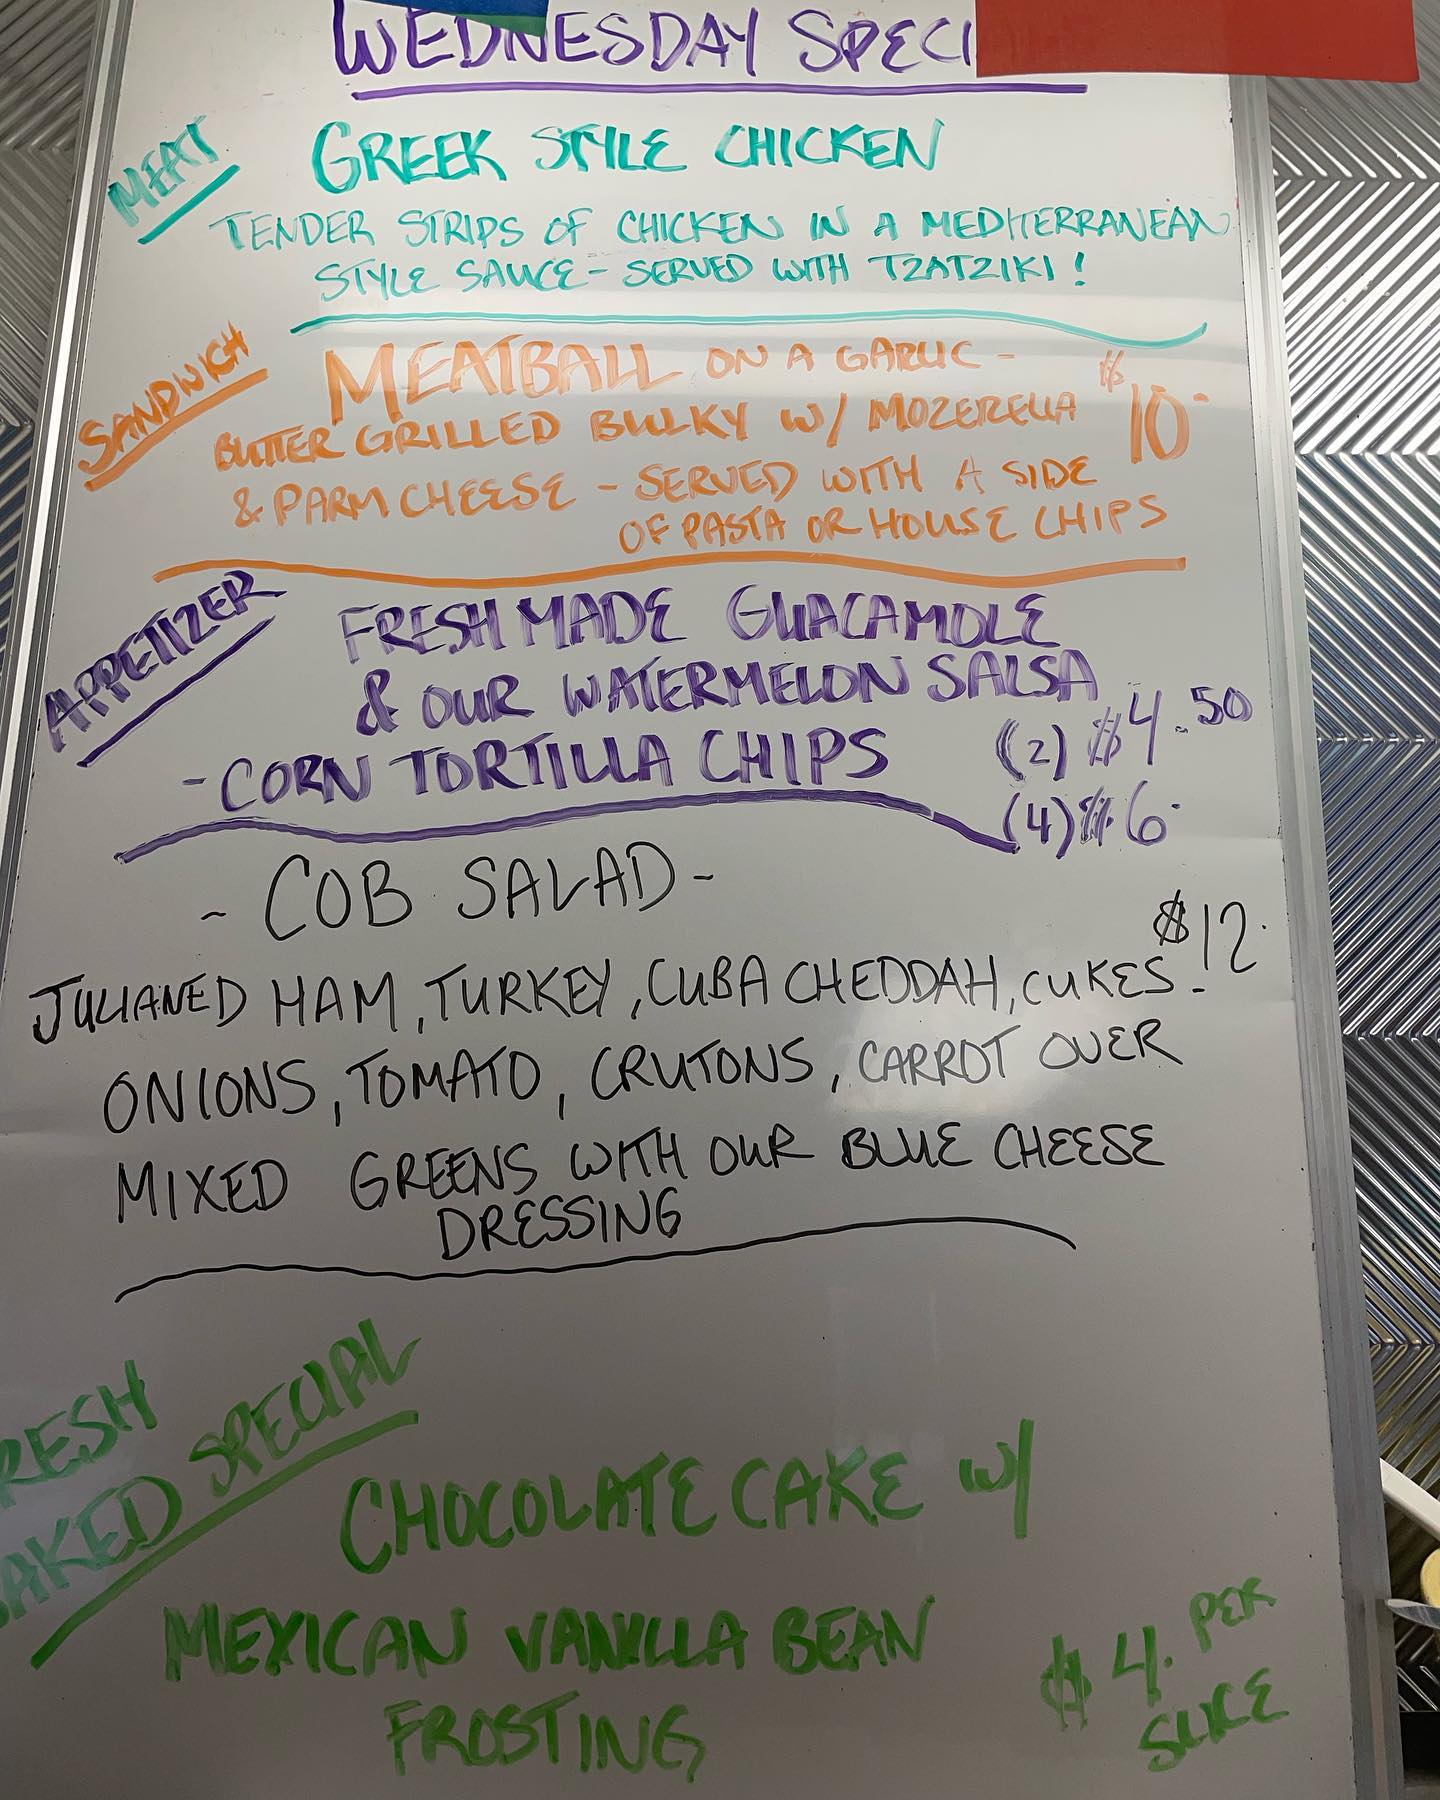 WEDNESDAY SPECI
MEAT
GREEK STYLE CHICKEN
TENDER STRIPS OF CHICKEN IN A MEDITERRANEAN
STYLE SAUCE - SERVED WITH TZATZIKI!
SANDWICH
MEATBALL ON A GARLIC -
BUTTER GRILLED BULKY W/ MOZERELLA
$10-
& PARM CHEESE - SERVED WITH A SIDE
OF PASTA OR HOUSE CHIPS
APPETIZER
FRESH MADE GUACAMOLE
& OUR WATERMELON SALSA
- CORN TORTILLA CHIPS
(2) $4.50
(4) $6-
- COB SALAD -
$12.
JULIANED HAM, TURKEY, CUBA CHEDDAH, CUKES -
ONIONS, TOMATO, CRUTONS, CARROT OVER
MIXED GREENS WITH OUR BLUE CHEESE
DRESSING
RESH
AKED SPECIAL
CHOCOLATE CAKE W/
MEXICAN VANILLA BEAN
FROSTING
$4. PER
SLICE